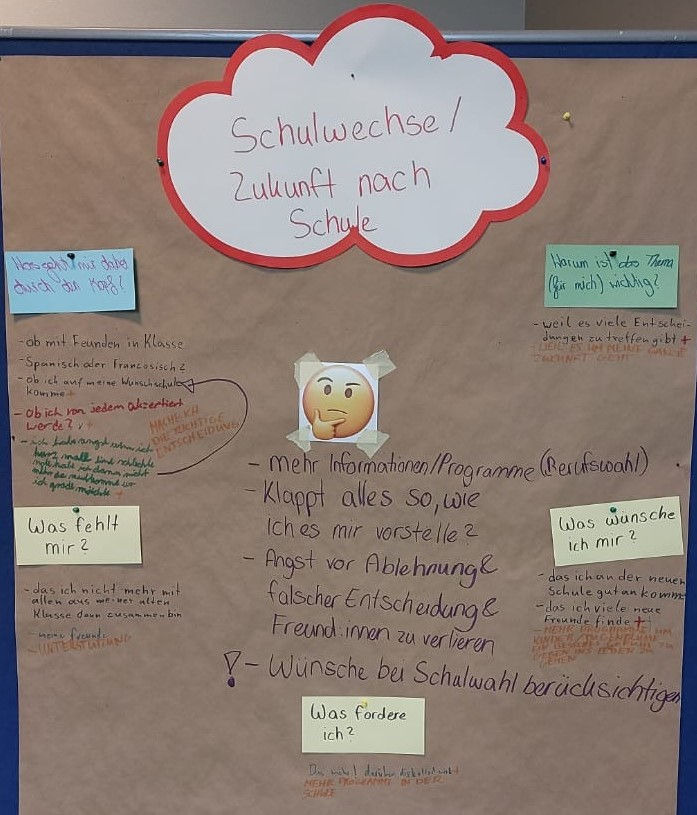 Schulwechsel/
Zukunft nach
Schule
Was geht mir dabei
durch den Kopf?
- ob mit Feunden in Klasse
- Spanisch oder Francösisch?
- ob ich auf meine Wunschschule
komme +
- Ob ich von jedem akzertiert
werde? +
MACHE ICH
DIE RICHTIGE
ENTSCHEIDUNG
- ich habe angst wenn ich
schlechte
ich dann nicht
ich grade möchte +
Warum ist das Thema
(für mich) wichtig?
- weil es viele Entschei-
dungen zu treffen gibt +
- WEIL ES UM MEINE GANZE
ZUKUNFT GEHT
- mehr Informationen/Programme (Berufswahl)
- Klappt alles so, wie
ich es mir vorstelle?
- Angst vor Ablehnung &
falscher Entscheidung &
Freund:innen zu verlieren
! - Wünsche bei Schulwahl berücksichtigen
Was fehlt
mir?
- das ich nicht mehr mit
allen aus meiner alten
Klasse dann zusammen bin
- meine freunde
- UNTERSTÜTZUNG
Was wünsche
ich mir?
- das ich an der neuen
Schule gut an komme
- das ich viele neue
Freunde finde +
- MEHR UM
KINDER/JUGENDLICHE
Was fordere
ich?
MEHR PROGRAMME IN DER
SCHULE